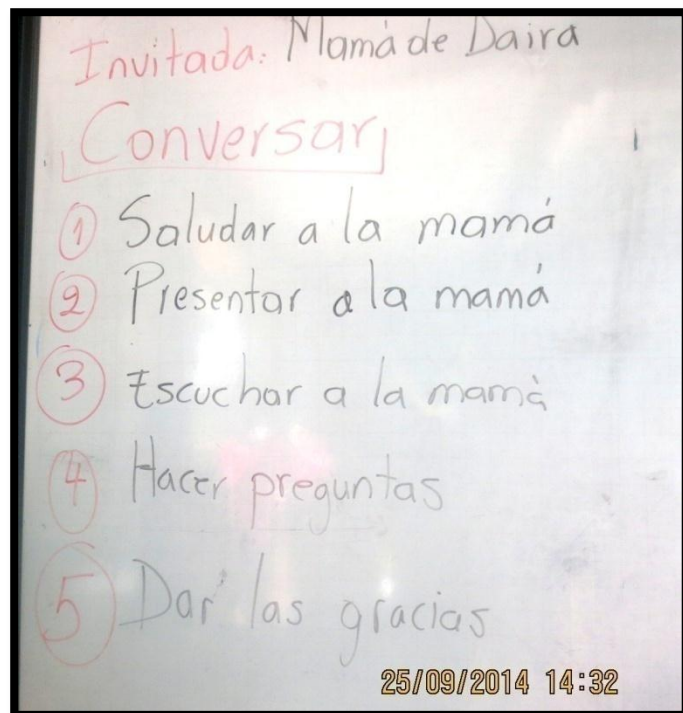 Invitada: Mamá de Daira
Conversar
1 Saludar a la mamá
2 Presentar a la mamá
3 Escuchar a la mamá
4 Hacer preguntas
5 Dar las gracias
25/09/2014 14:32